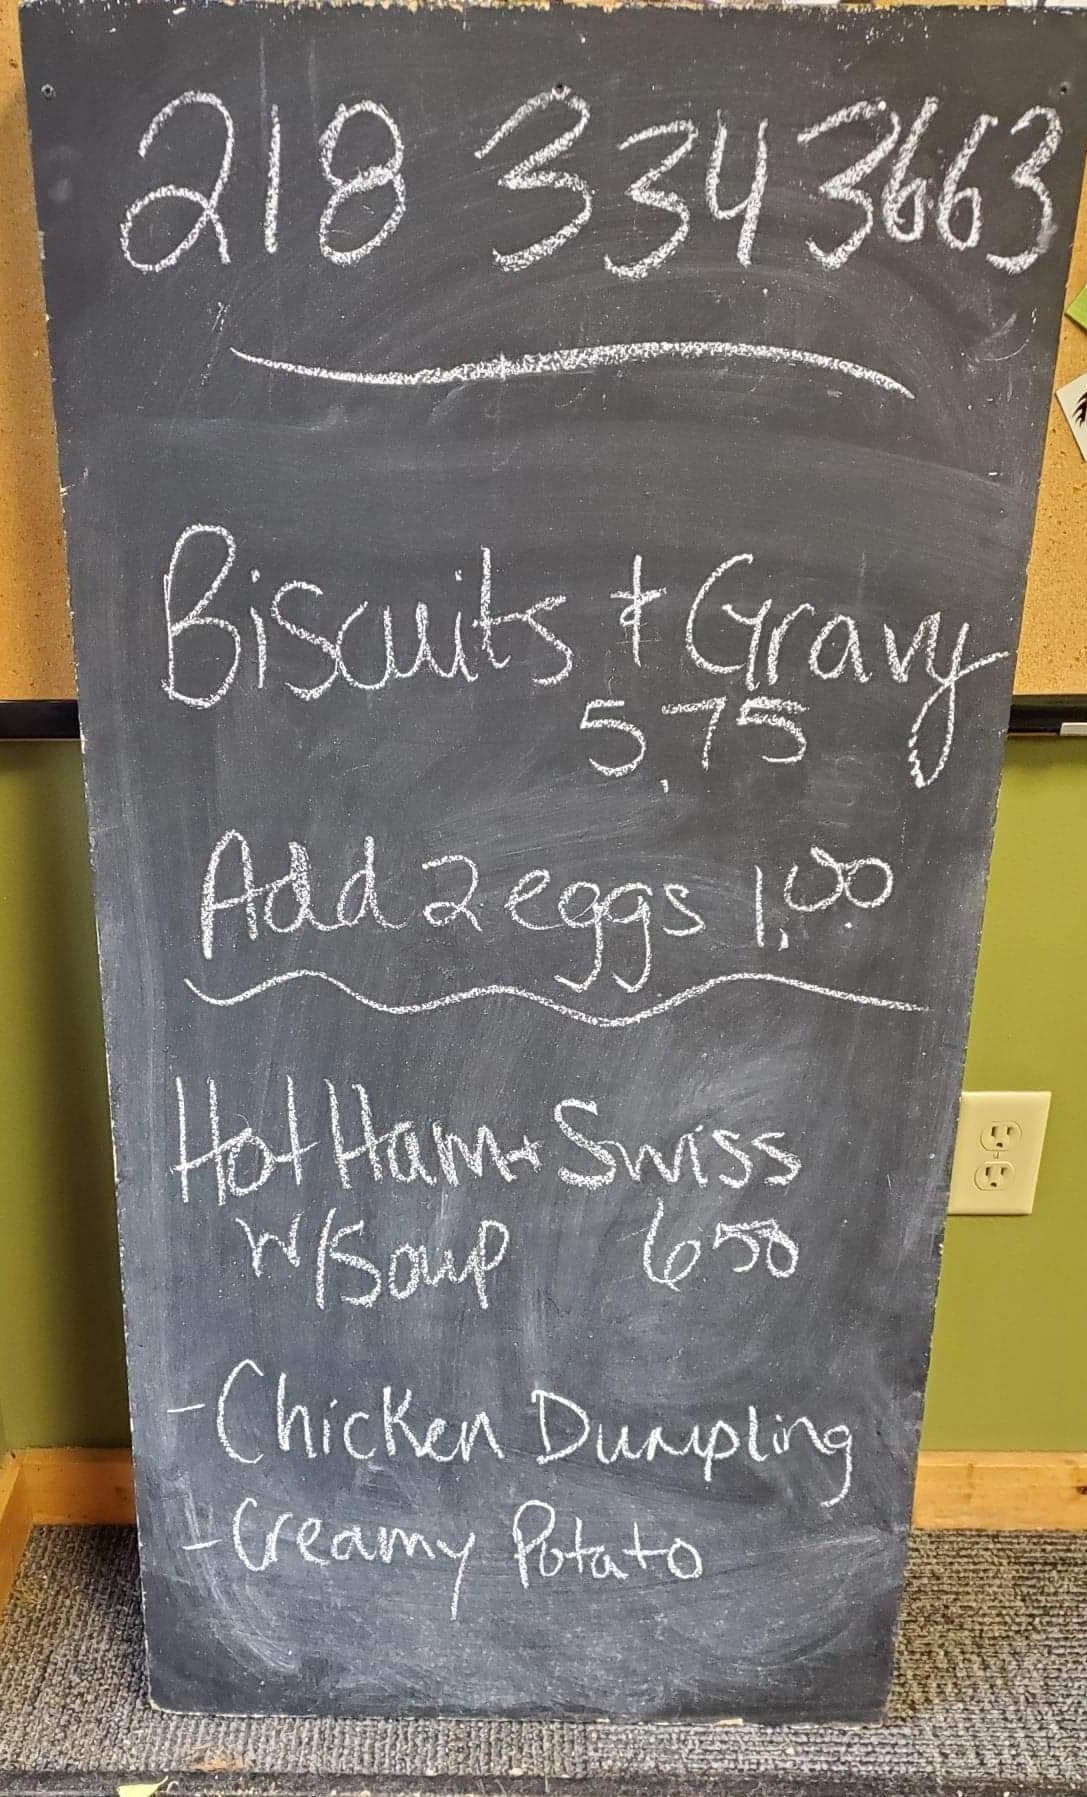 218 334 3663
Biscuits & Gravy
5.75
Add 2 eggs 1.00
Hot Ham + Swiss
w/Soup 650
- Chicken Dumpling
- Creamy Potato